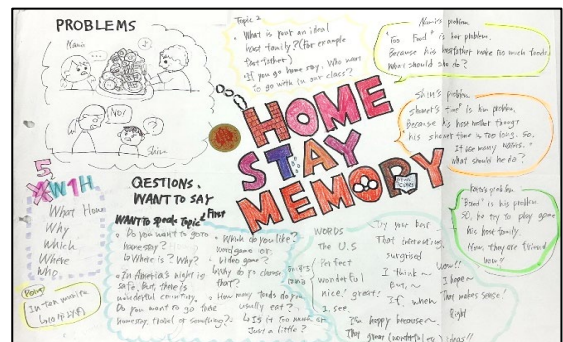 PROBLEMS
Nami
NO!
Shin
Topic 2
What is your an ideal
host family? (for example
If you go home stay, Who wants
to go with in our class?
Nami's problem
"Too Food" is her problem.
Because his host father make too much foods.
What should she do?
HOME
STAY
MEMORY
problem
Because his host mother though
his shower time is too long. So,
It use many waters.
What should he do?
problem
is his problem
So, he try to play game
his host family.
now!!
5W1H
What How
Why
Which
Where
Who
Point
QESTIONS.
WANT TO SAY
WANT to speak Topic First
Do you want to go to
home stay?
Where is? Why?
In America's night is
safe, But, there is
country.
Do you want to go
homestay, travel or something?
Which do you like?
card game or
video game?
Why do you choose
that?
How many foods do you
usually eat?
Is it too much or
Just a little?
WORDS
The U.S
Perfect
wonderful
nice! great!
I see.
Try your best
That interesting
surprised
I think~
But, ~
If when
I'm happy because~
That great (wonderful) ideas!!
Wow!!
I hope~
That makes sense!
Right